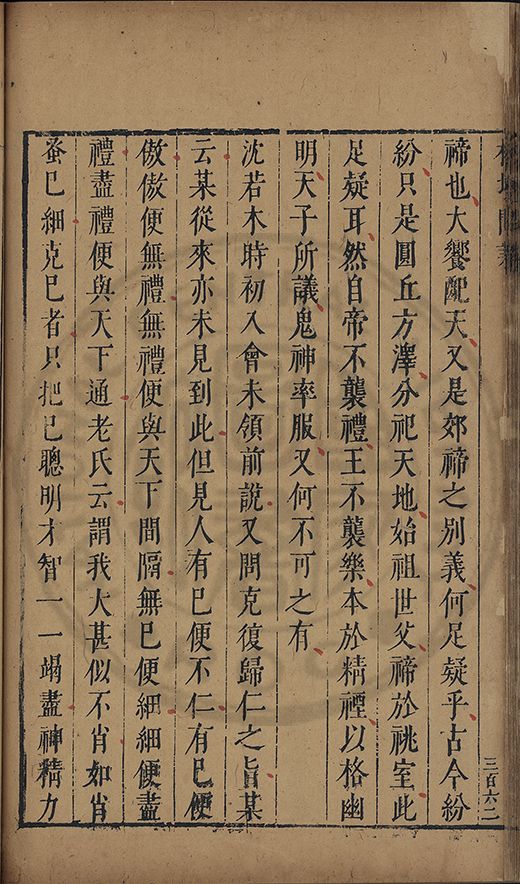 禘也大饗配天又是郊禘之别義何足疑乎古今紛
紛只是圓丘方澤分祀天地始祖世父禘於祧室此
足疑耳然自帝不襲禮王不襲樂本於精禋以格幽
明天子所議鬼神率服又何不可之有
沈若木時初入會未領前說又問克復歸仁之旨某
云某從來亦未見到此但見人有已便不仁有已便
傲傲便無禮無禮便與天下間隔無已便細細便盡
禮盡禮便與天下通老氏云謂我大甚似不肖如肖
蚤已細克已者只把已聰明才智一一竭盡神精力
三百六二